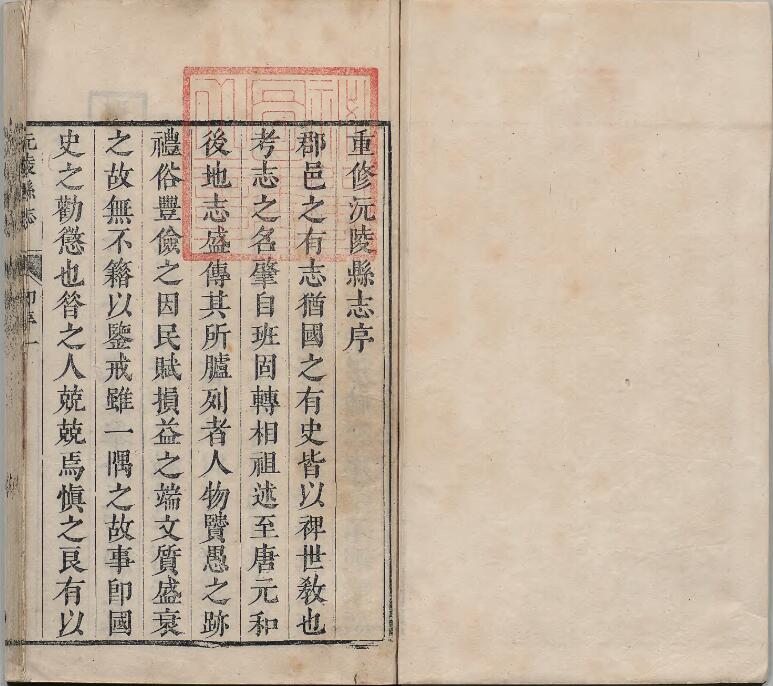 重修沅陵縣志序
郡邑之有志猶國之有史皆以裨世敎也
考志之名肇自班固轉相祖述至唐元和
後地志盛傳其所臚列者人物賢愚之跡
禮俗豐儉之因民賦損益之端文質盛衰
之故無不籍以鑒戒雖一隅之故事卽國
史之勸懲也昝之人兢兢焉愼之良有以
沅陵縣志